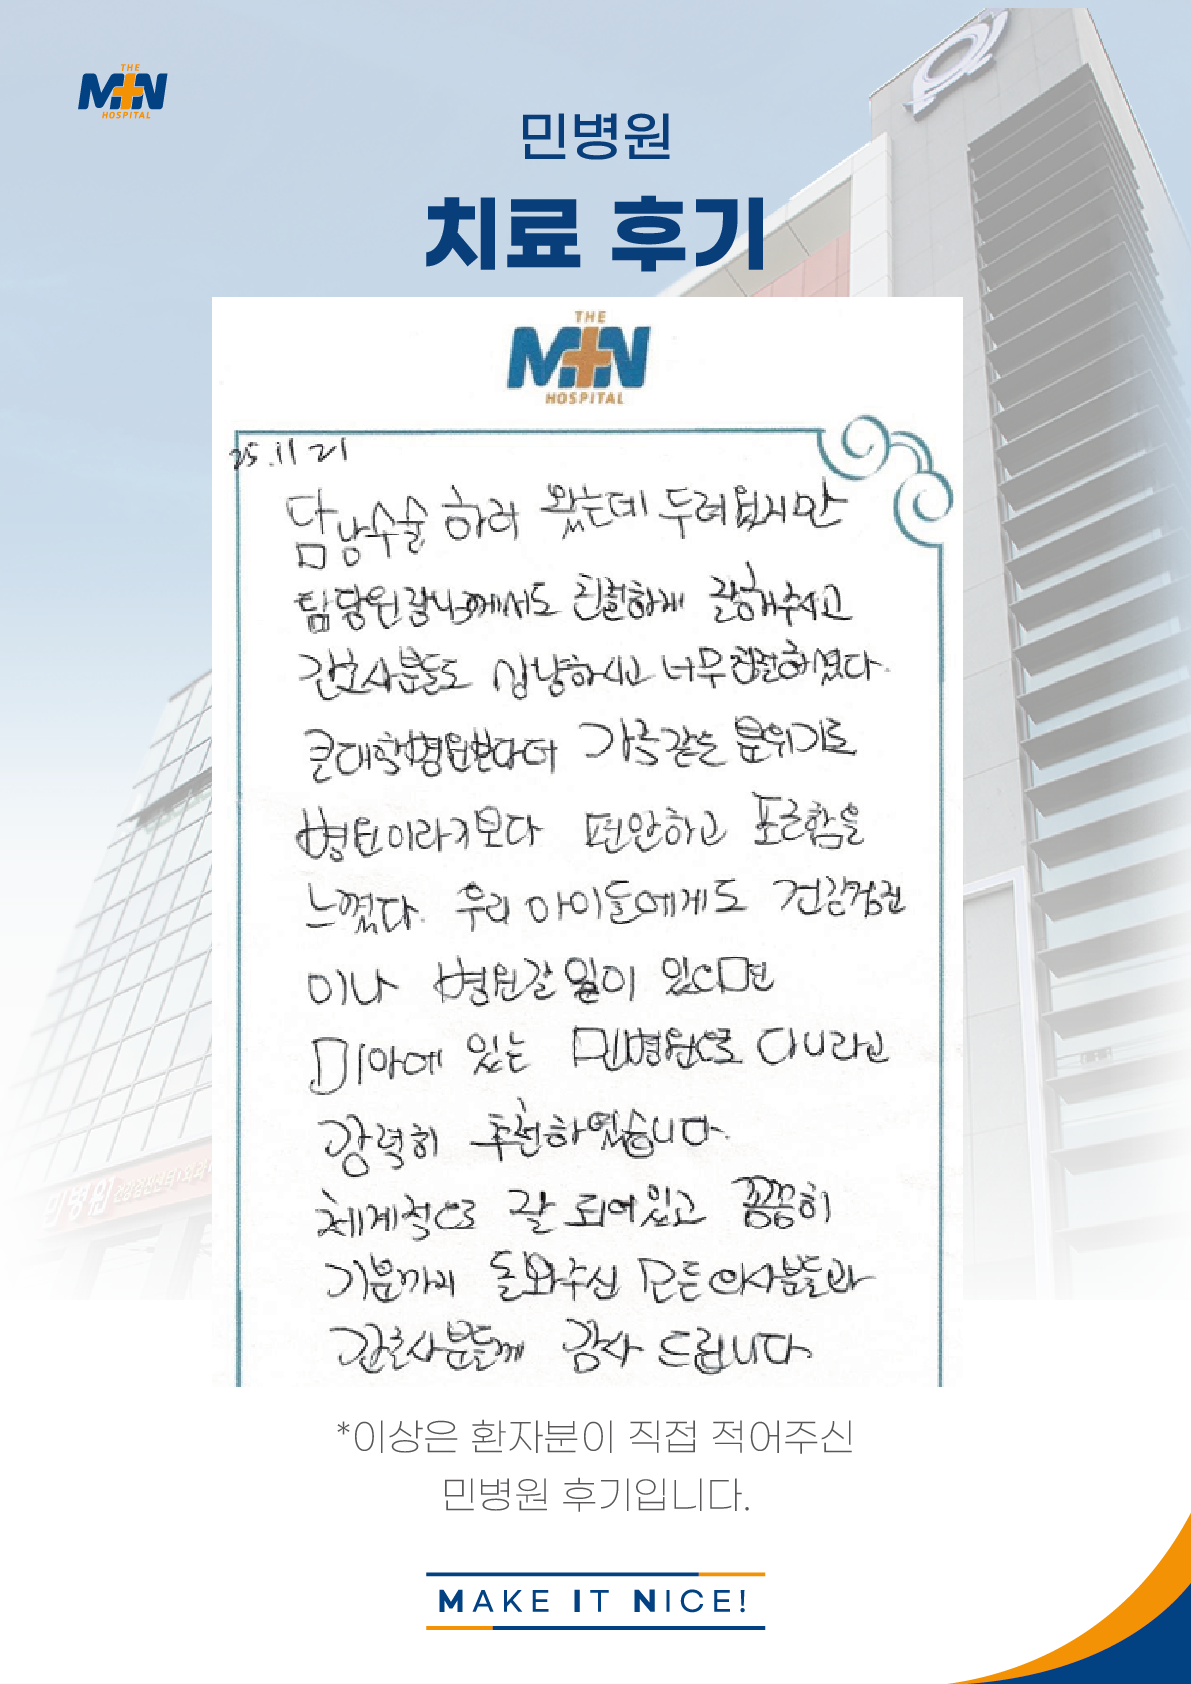 THE
MIN
HOSPITAL
민병원
치료 후기
THE
MIN
HOSPITAL
25.11 21
담낭수술 하러 왔는데 두려웠지만
담당원장님께서도 친절하게 잘해주시고
간호사분들도 상냥하시고 너무 친절하셨다.
큰대학병원보다더 가족같은 분위기로
병원이라기보다 편안하고 포근함을
느꼈다. 우리 아이들에게도 건강검진
이나 병원갈일이 있으면
미아에 있는 민병원으로 다니라고
강력히 추천하였습니다.
체계적으로 잘 되어있고 꼼꼼히
기분까지 돌봐주신 모든의사분들과
간호사분들께 감사 드립니다.
*이상은 환자분이 직접 적어주신
민병원 후기입니다.
MAKE IT NICE!
민병원